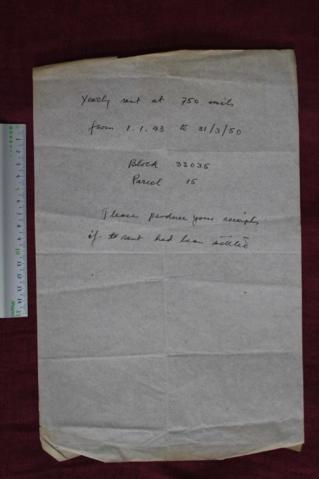 Yearly rent at 750 mils
from 1.1.43 to 31/3/50
Block 33035
Parcel 15
Please produce your receipts
if to rent had been settled